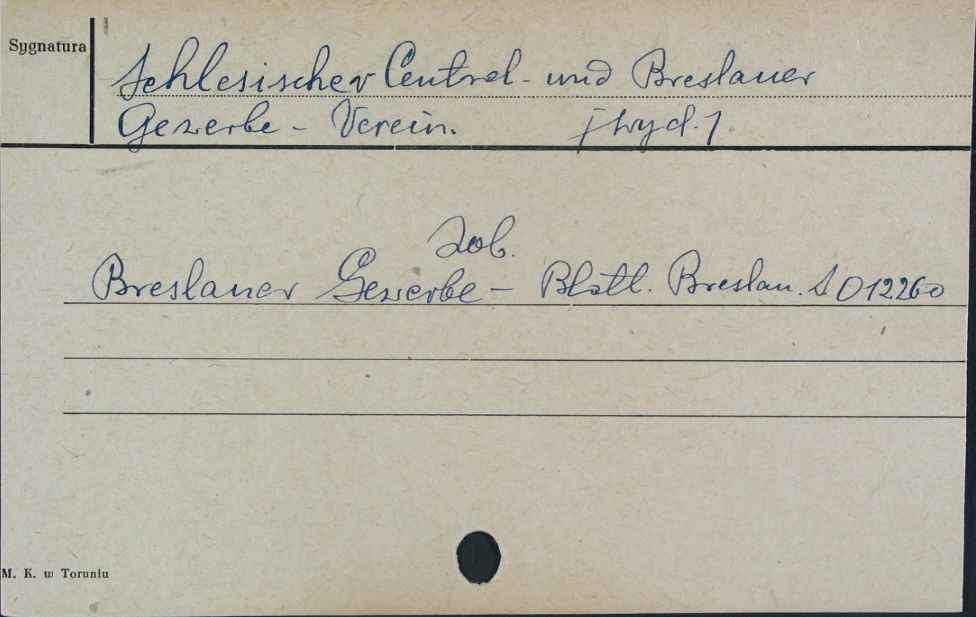 Sygnatura
Schlesischer Central- und Breslauer
Gewerbe - Verein. [wyd.]
Zob.
Breslauer Gewerbe - Blatt. Breslau. SO12260
M. K. w Toruniu